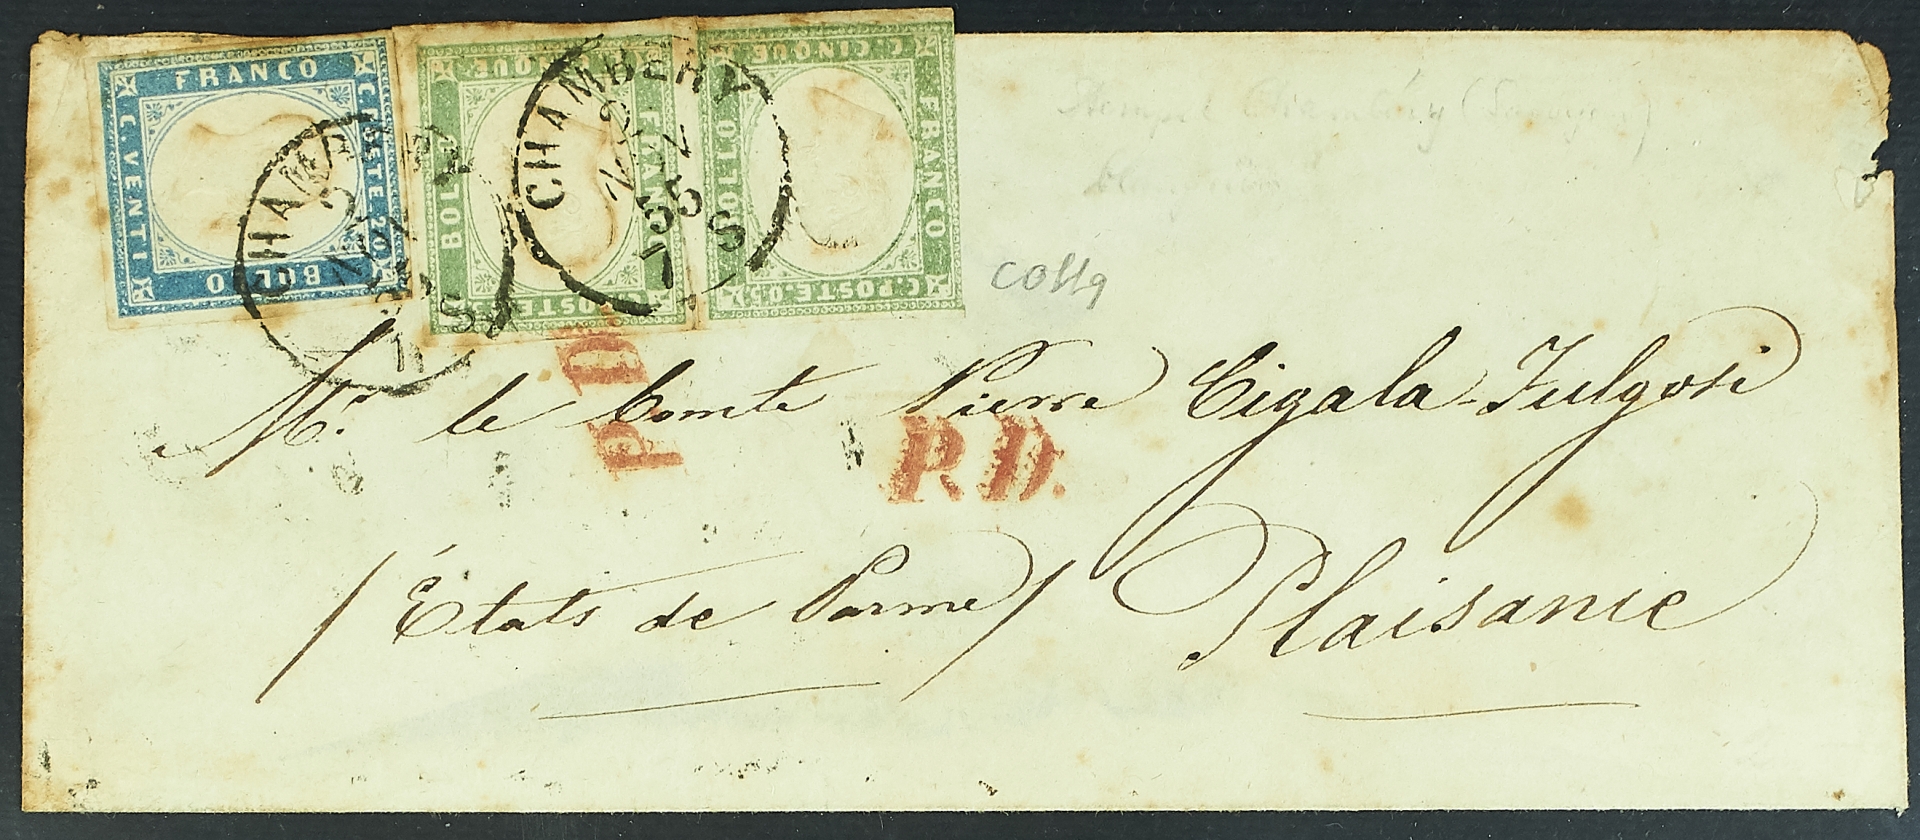 FRANCO
C.POSTE.20
BOLLO
C.VENTI
C.CINQUE
FRANCO
C.POSTE
BOLLO
C.CINQUE
FRANCO
C.POSTE.05
BOLLO
CHAMBERY
CHAMBERY
55
7 S
11 S
P.D.
P.D.
Mr. le Comte Pierre Cigala-Fulgosi
/ États de Parme / Plaisance